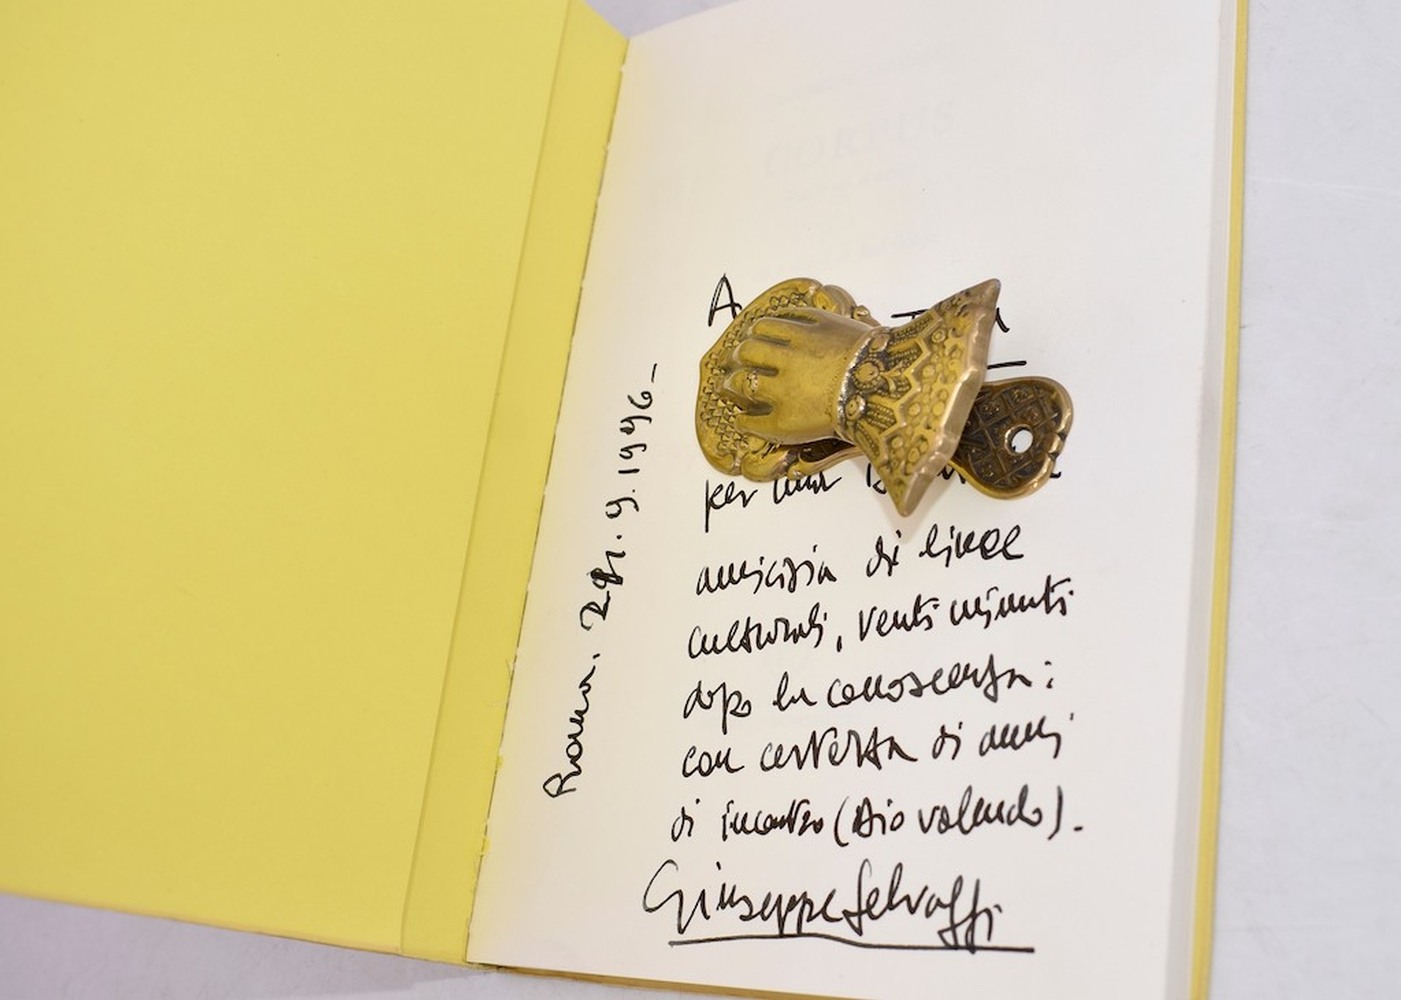 CORPUS
A
per una
amicizia di linee
culturali, venti minuti
dopo la conoscenza:
con certezza di anni
di incontro (Dio volendo).
Giuseppe Selvaggi
Roma. 9.1996 –